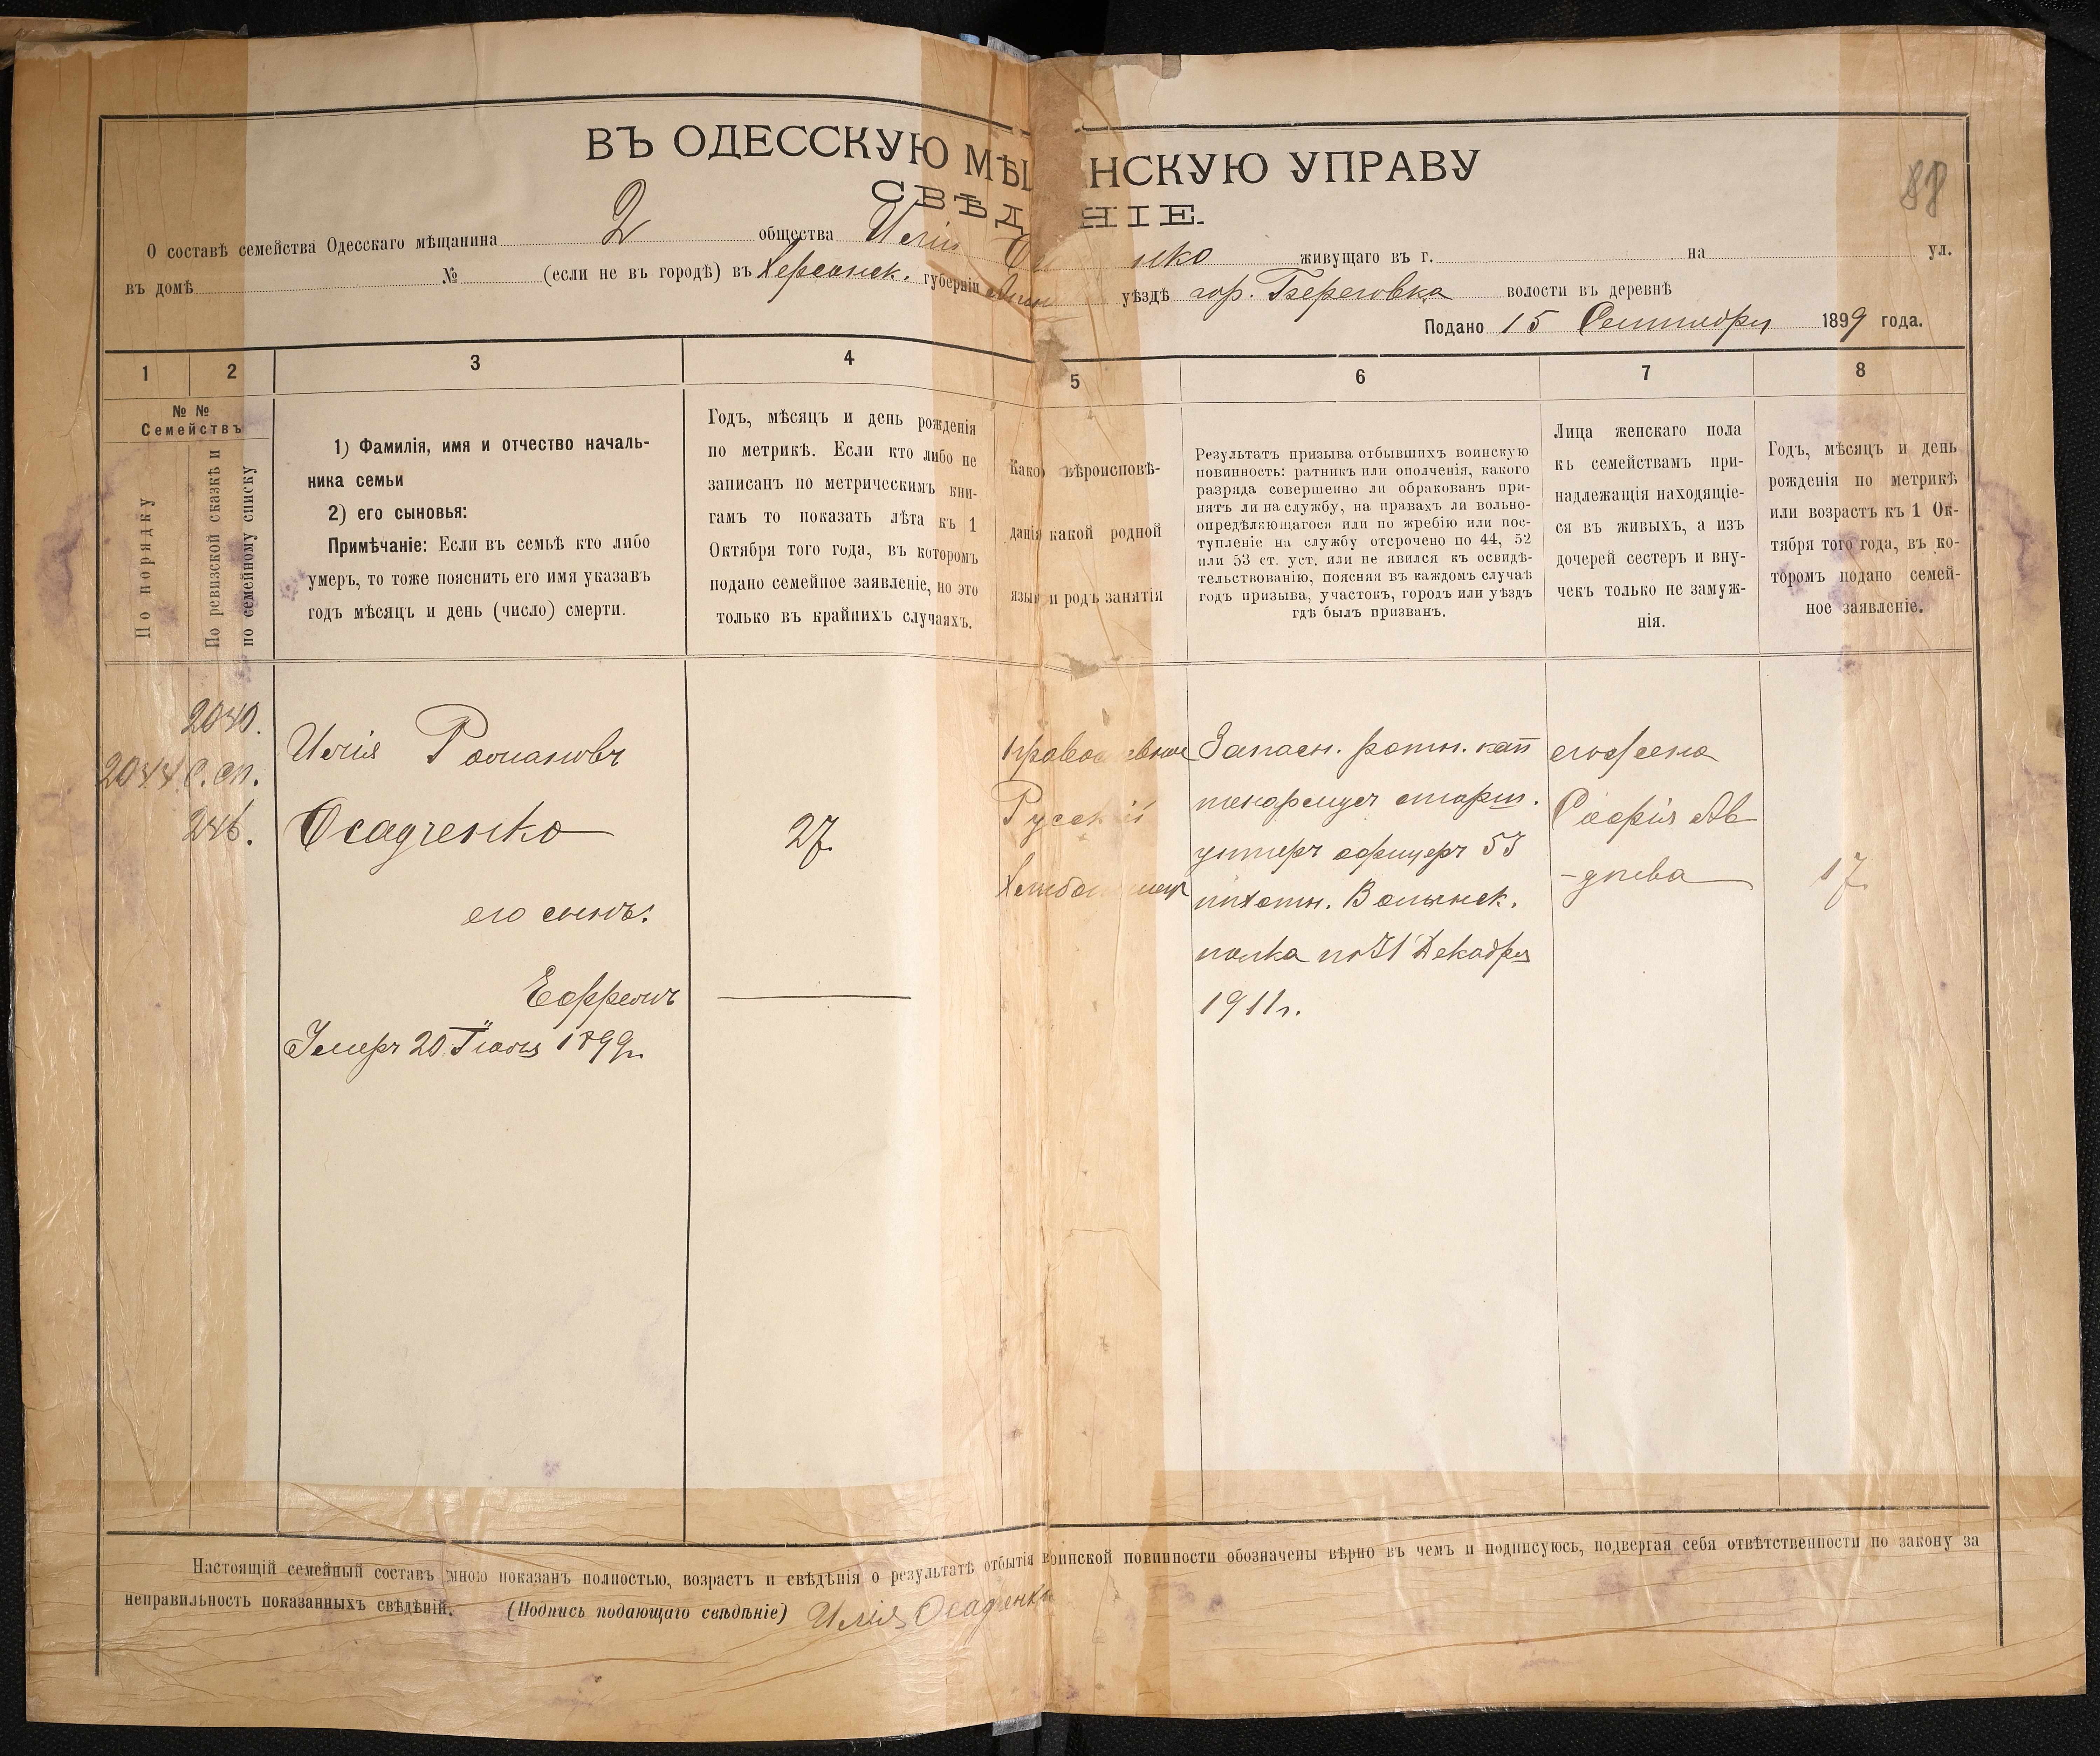 ВЪ ОДЕССКУЮ МѢЩ НСКУЮ УПРАВУ
СВѢД НІЕ.
88
О составѣ семейства Одесскаго мѣщанина 2 общества Илія О нко живущаго въ г. на ул.
въ домѣ № (если не въ городѣ) въ Херсонск. губерніи Анан уѣздѣ гор. Березовка волости въ деревнѣ
Подано 15 Сентября 1899 года.
1 2 3 4 5 6 7 8
№ №
Семействъ
По порядку
По ревизской сказкѣ и
по семейному списку
1) Фамилія, имя и отчество началь-
ника семьи
2) его сыновья:
Примѣчаніе: Если въ семьѣ кто либо
умеръ, то тоже пояснить его имя указавъ
годъ мѣсяцъ и день (число) смерти.
Годъ, мѣсяцъ и день рожденія
по метрикѣ. Если кто либо не
записанъ по метрическимъ кни-
гамъ то показать лѣта къ 1
Октября того года, въ которомъ
подано семейное заявленіе, но это
только въ крайнихъ случаяхъ.
Како вѣроисповѣ-
данія какой родной
язык и родъ занятія
Результатъ призыва отбывшихъ воинскую
повинность: ратникъ или ополченія, какого
разряда совершенно ли обракованъ при-
нятъ ли на службу, на правахъ ли вольно-
опредѣляющагося или по жребію или пос-
тупленіе на службу отсрочено по 44, 52
или 53 ст. уст. или не явился къ освидѣ-
тельствованію, поясняя въ каждомъ случаѣ
годъ призыва, участокъ, городъ или уѣздъ
гдѣ былъ призванъ.
Лица женскаго пола
къ семействамъ при-
надлежащія находящіе-
ся въ живыхъ, а изъ
дочерей сестеръ и вну-
чекъ только не замуж-
нія.
Годъ, мѣсяцъ и день
рожденія по метрикѣ
или возрастъ къ 1 Ок-
тября того года, въ ко-
торомъ подано семей-
ное заявленіе.
2040.
2044 С. сп.
246.
Илія Романовъ
Осадченко
его сынъ:
Ефремъ
Умеръ 20 Іюля 1899 г.
27
Православный
Русскій
Хлѣбопашец
Запасн. ротн. кап
тенармусъ старш.
унтеръ офицеръ 53
пѣхотн. Волынск.
полка по 31 Декабря
1911 г.
его жена
Софія Ав
-дѣева
17
Настоящій семейный составъ мною показанъ полностью, возрастъ и свѣдѣнія о результатѣ отбытія воинской повинности обозначены вѣрно въ чемъ и подписуюсь, подвергая себя отвѣтственности по закону за
неправильность показанныхъ свѣдѣній. (Подпись подающаго свѣдѣніе) Илія Осадченко